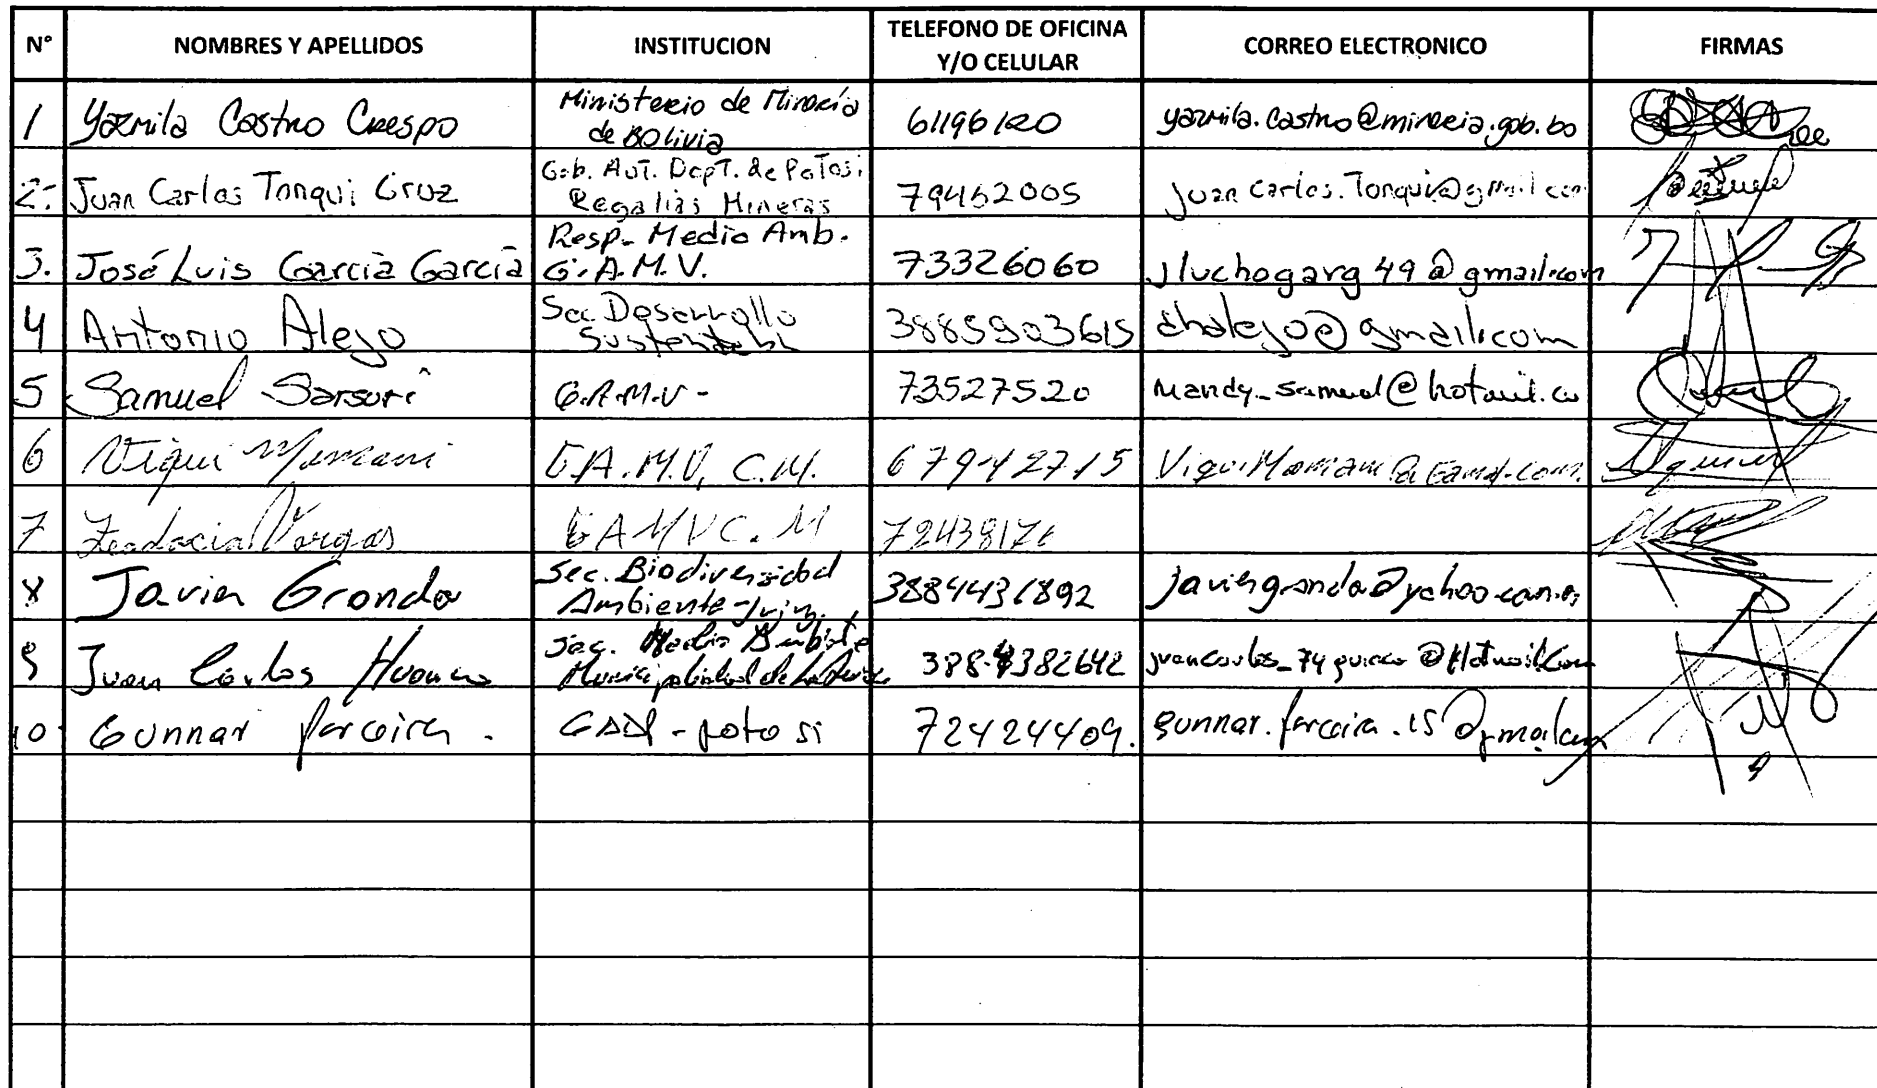 N° NOMBRES Y APELLIDOS INSTITUCION TELEFONO DE OFICINA Y/O CELULAR CORREO ELECTRONICO FIRMAS
1 Yazmila Castro Crespo Ministerio de Minería de Bolivia 61196120 yazmila.castro@mineria.gob.bo
2: Juan Carlos Tonqui Cruz Gob. Aut. Dept. de Potosi Regalias Mineras 79462005 juan carlos.Tonqui@gmail.com
3. José Luis García García Resp. Medio Amb. G.A.M.V. 73326060 jluchogarg49@gmail.com
4 Antonio Alejo Sec Desarrollo 3885903615 ahalejo@gmail.com
5 Samuel Sarsuri G.A.M.V- 73527520 mandy_samuel@hotmail.co
6 Viqui Mamani G.A.M.V, C.M. 67942715
7 Vargas GAMVC.M
8 Javier Gronda Sec. Biodiversidad Ambiente 3884431892 javiergronda@yahoo.com.ar
9 Juan Carlos Sec. Medio Ambiente Municipalidad de 388-4382642
10 Gunnar GADP-potosi 72424409.